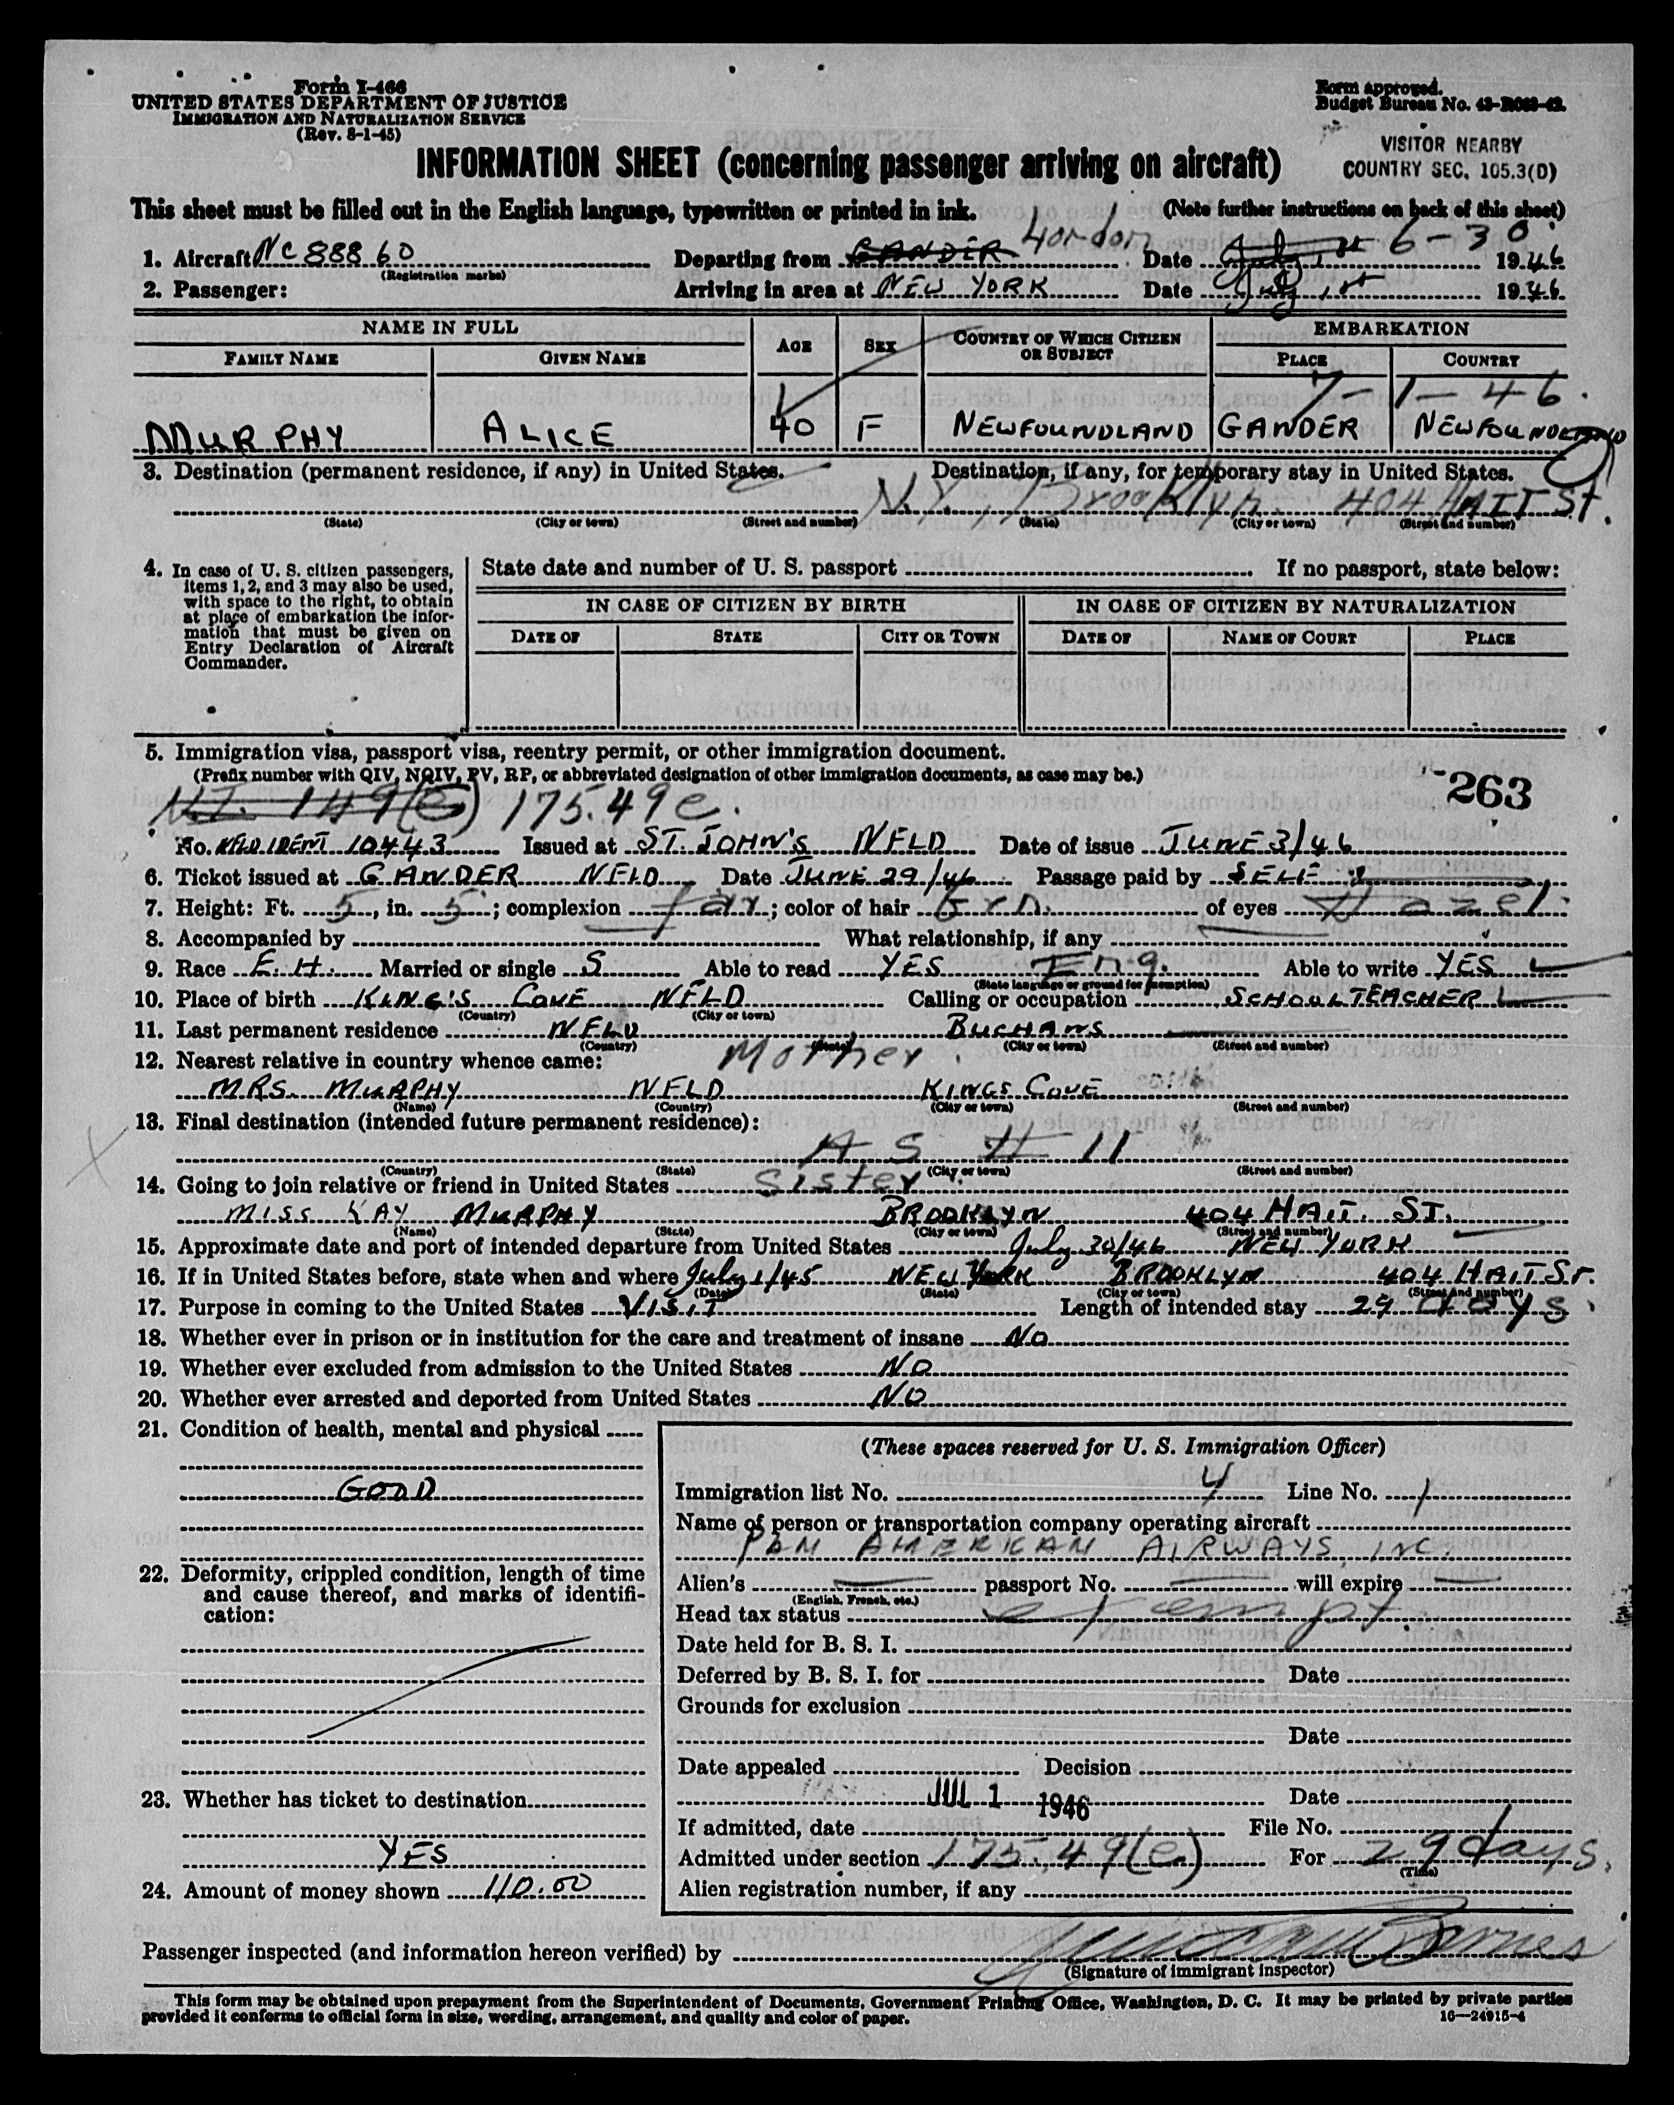 Form I-466
UNITED STATES DEPARTMENT OF JUSTICE
IMMIGRATION AND NATURALIZATION SERVICE
(Rev. 8-1-45)
Form approved.
Budget Bureau No. 43-R063-42.
VISITOR NEARBY
COUNTRY SEC. 105.3(D)
INFORMATION SHEET (concerning passenger arriving on aircraft)
This sheet must be filled out in the English language, typewritten or printed in ink. (Note further instructions on back of this sheet)
1. Aircraft NC 88860 Departing from GANDER London Date July 1st 6-30 1946
(Registration marks)
2. Passenger: Arriving in area at NEW YORK Date July 1st 1946
NAME IN FULL AGE SEX COUNTRY OF WHICH CITIZEN OR SUBJECT EMBARKATION
FAMILY NAME GIVEN NAME PLACE COUNTRY
7-1-46.
MURPHY ALICE 40 F NEWFOUNDLAND GANDER NEWFOUNDLAND
3. Destination (permanent residence, if any) in United States. Destination, if any, for temporary stay in United States.
N.Y., Brooklyn. 404 HAIT St.
(State) (City or town) (Street and number) (State) (City or town) (Street and number)
4. In case of U. S. citizen passengers, items 1, 2, and 3 may also be used, with space to the right, to obtain at place of embarkation the information that must be given on Entry Declaration of Aircraft Commander.
State date and number of U. S. passport If no passport, state below:
IN CASE OF CITIZEN BY BIRTH IN CASE OF CITIZEN BY NATURALIZATION
DATE OF STATE CITY OR TOWN DATE OF NAME OF COURT PLACE
5. Immigration visa, passport visa, reentry permit, or other immigration document.
(Prefix number with QIV, NQIV, PV, RP, or abbreviated designation of other immigration documents, as case may be.)
263
149(e) 175.49e.
No. NFLD IDENT 10443 Issued at ST. JOHN'S NFLD Date of issue JUNE 3/46
6. Ticket issued at GANDER NFLD Date JUNE 29/46 Passage paid by SELF
7. Height: Ft. 5, in. 5; complexion fair; color of hair Brn. of eyes Hazel.
8. Accompanied by What relationship, if any
9. Race E.H. Married or single S Able to read YES Eng. Able to write YES
(State language or ground for exemption)
10. Place of birth KING'S COVE NFLD Calling or occupation SCHOOL TEACHER
(Country) (City or town)
11. Last permanent residence NFLD BUCHANS
(Country) (State) (City or town) (Street and number)
12. Nearest relative in country whence came: Mother.
MRS. MURPHY NFLD KINGS COVE
(Name) (Country) (City or town) (Street and number)
13. Final destination (intended future permanent residence):
AS # 11
(Country) (State) (City or town) (Street and number)
14. Going to join relative or friend in United States Sister
MISS KAY MURPHY BROOKLYN 404 HAIT. ST.
(Name) (State) (City or town) (Street and number)
15. Approximate date and port of intended departure from United States July 30/46 NEW YORK
16. If in United States before, state when and where July 1/45 NEW YORK BROOKLYN 404 HAIT ST.
(Date) (State) (City or town) (Street and number)
17. Purpose in coming to the United States VISIT Length of intended stay 29 days.
18. Whether ever in prison or in institution for the care and treatment of insane NO
19. Whether ever excluded from admission to the United States NO
20. Whether ever arrested and deported from United States NO
21. Condition of health, mental and physical
GOOD
22. Deformity, crippled condition, length of time and cause thereof, and marks of identification:
23. Whether has ticket to destination
YES
24. Amount of money shown 110.00
(These spaces reserved for U. S. Immigration Officer)
Immigration list No. 4 Line No. 1
Name of person or transportation company operating aircraft
PAN AMERICAN AIRWAYS, INC.
Alien's passport No. will expire
(English, French, etc.)
Head tax status exempt.
Date held for B. S. I.
Deferred by B. S. I. for Date
Grounds for exclusion
Date
Date appealed Decision
JUL 1 1946 Date
If admitted, date File No.
Admitted under section 175.49(e) For 29 days.
(Time)
Alien registration number, if any
Passenger inspected (and information hereon verified) by
(Signature of immigrant inspector)
This form may be obtained upon prepayment from the Superintendent of Documents, Government Printing Office, Washington, D. C. It may be printed by private parties
provided it conforms to official form in size, wording, arrangement, and quality and color of paper.
16—24915-4